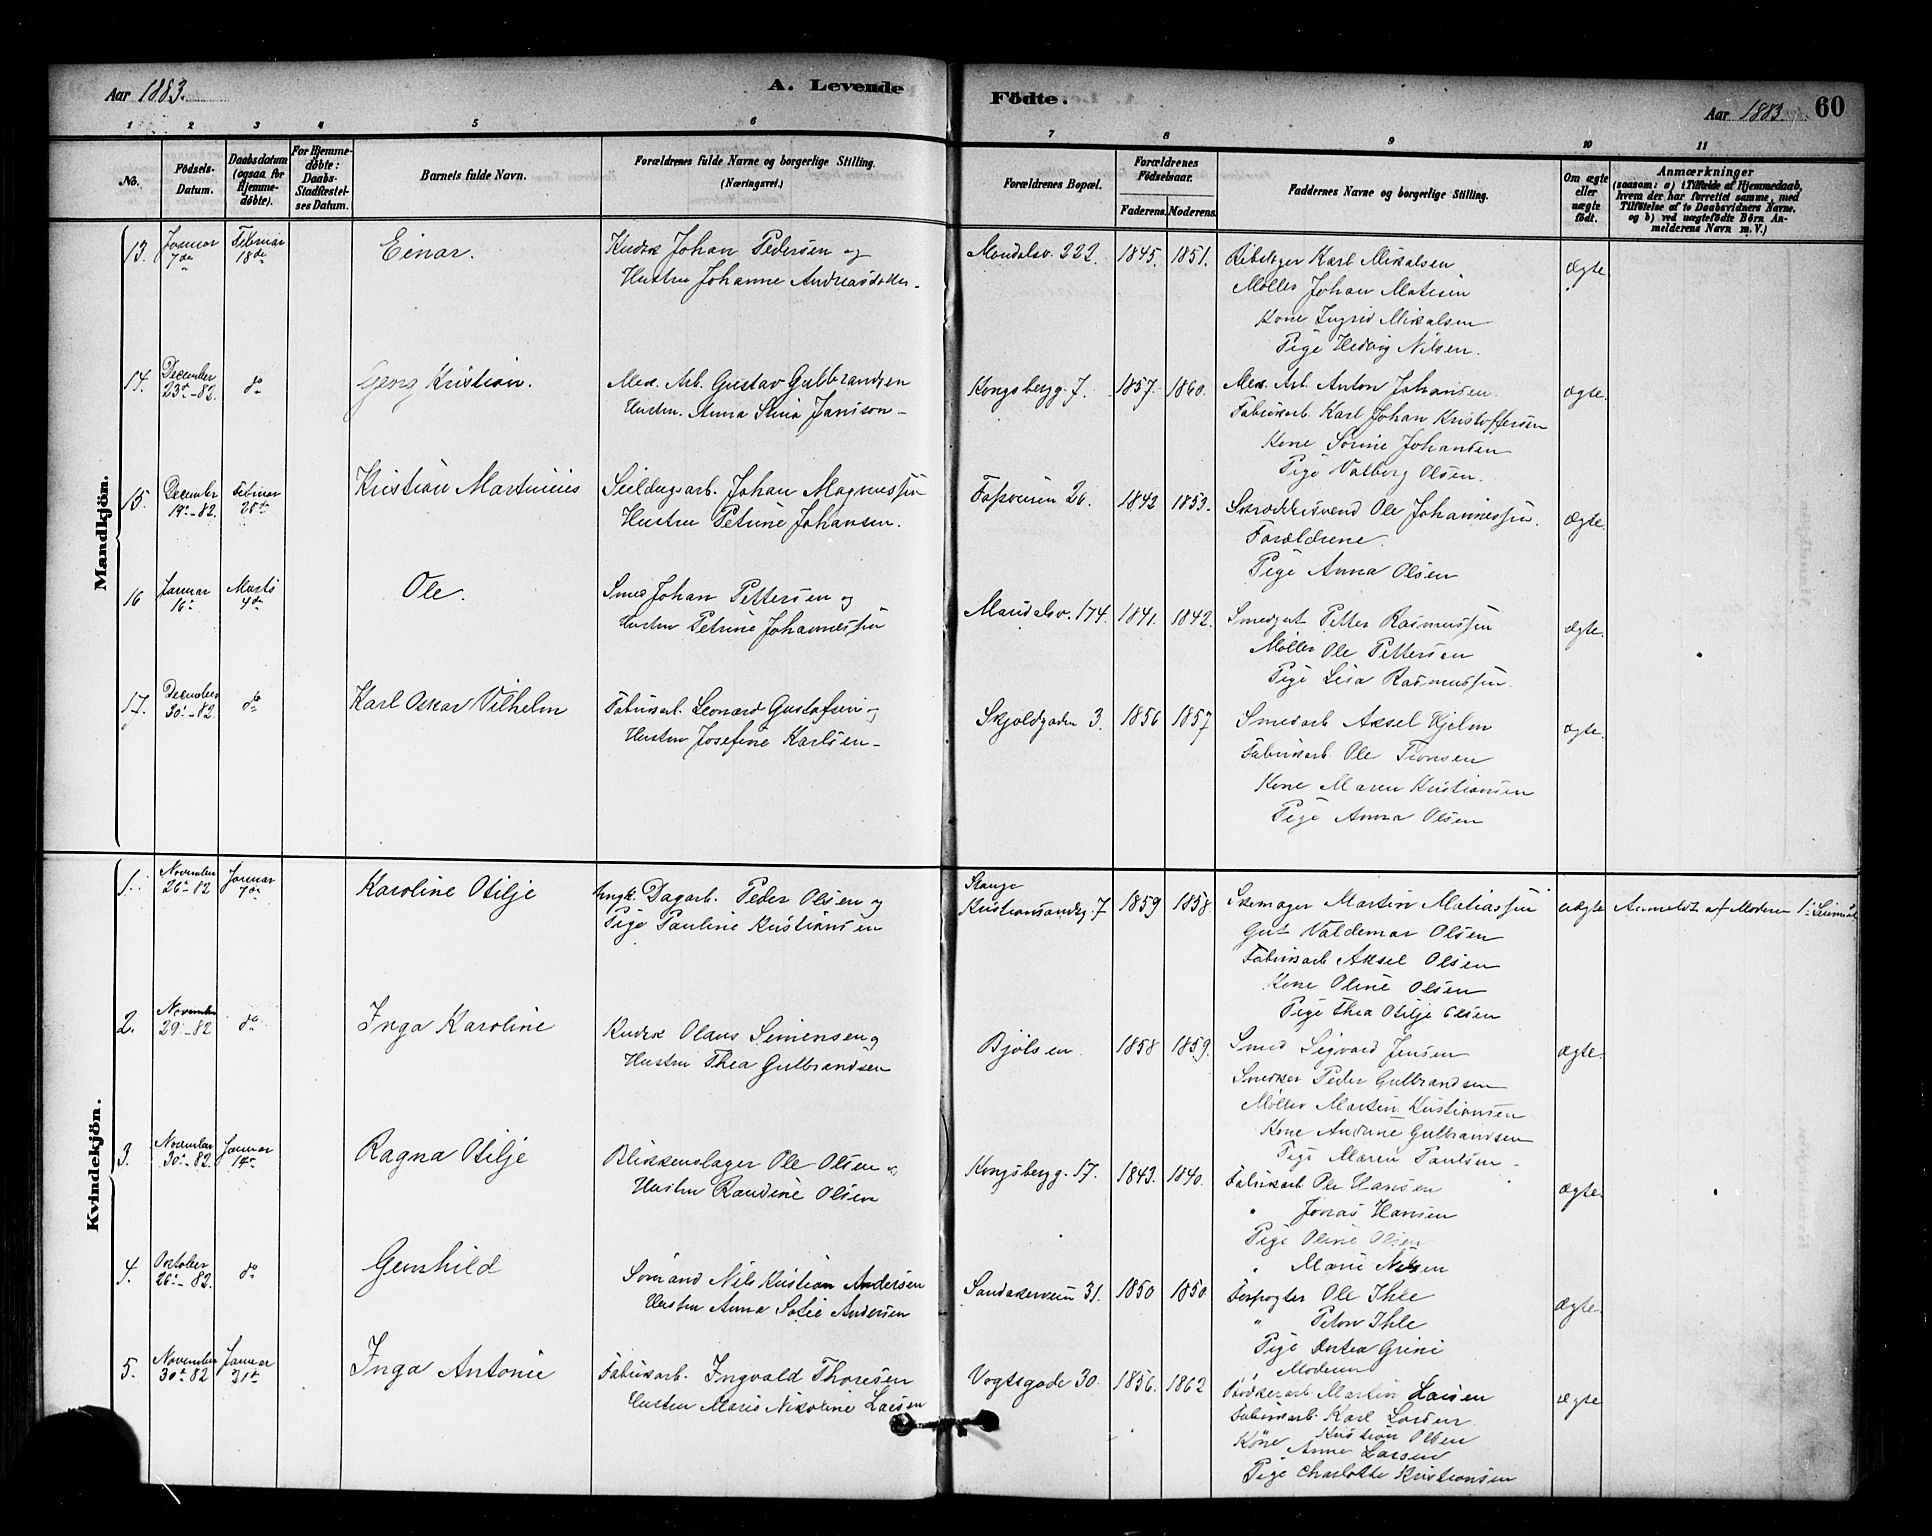 Aar 1883.
A. Levende
Födte.
Aar 1883. 60
1 2 3 4 5 6 7 8 9 10 11
No.
Födsels-
Datum.
Daabsdatum
(ogsaa for
Hjemme-
døbte).
For Hjemme-
døbte:
Daabs-
Stadfæstel-
ses Datum.
Barnets fulde Navn.
Forældrenes fulde Navne og borgerlige Stilling.
(Næringsvei.)
Forældrenes Bopæl.
Forældrenes
Fødselsaar.
Faderens. Moderens.
Faddernes Navne og borgerlige Stilling.
Om ægte
eller
uægte
født.
Anmærkninger
(saasom: a) i Tilfælde af Hjemmedaab,
hvem der har forrettet samme, med
Tilføielse af to Daabsvidners Navne,
og b) ved uægtefødte Børn An-
melderens Navn m. V.)
Mandkjön.
13. Januar 7de Februar 18de Einar. Kudsk Johan Pedersen og Maridalsv. 222. 1845. 1851. Karl Mikalsen ægte
Hustru Johanne Andreasdatter Møller Johan Matisen
Kone Ingrid Mikalsen
Pige Hedvig Nilsen.
14. December 23de-82. do Georg Kristian. Mek. Arb. Gustav Gulbrandsen Kongsbergg. 7. 1857. 1860. Mek. Arb. Anton Johansen. ægte.
Hustru Anna Stina Jansson Fabrikarb. Karl Johan Kristoffersen
Kone Sorine Johansen
Pige Valborg Olsen.
15. December 19-82. Februar 25de Kristian Martinius Seildugsarb. Johan Magnussen Fossveien 26. 1842 1853. Skræddersvend Ole Johannessen. ægte.
Hustru Petrine Johansen. Forældrene.
Pige Anna Olsen
16 Januar 16 Marts 4de Ole. Smed Johan Pettersen og Maridalsv. 174. 1841. 1842. Smedgut Petter Rasmussen ægte.
Hustru Petrine Johannessen Møller Ole Pettersen
Pige Lisa Rasmussen.
17. December 30-82. do Karl Oskar Vilhelm Fabrikarb. Leonard Gustafsen og Skjoldgaden 3. 1856 1857 Smedarb Aksel Hjelm ægte.
Hustru Josefine Karlsen Fabrikarb. Ole
Kone Maren Kristiansen
Pige Anna Olsen
Kvindekjön.
1. November 26-82 Januar 7de Karoline Otilje Ungk. Dagarb. Peder Olsen og Stange 1859 1858. Skomager Martin Matiassen uægte Anmeldt af Moderen
Pige Pauline Kristiansen Kristiansandsg. 7 Gut Valdemar Olsen
Fabrikarb Aksel Olsen
Kone Oline Olsen
Pige Thea Otilje Olsen
2. November 29-82 do Inga Karoline Kudsk Olaus Simensen og Bjølsen. 1858 1859. Smed Sigvard Jensen ægte.
Hustru Thea Gulbrandsen Peder Gulbrandsen
Møller Martin Kristiansen
Kone Andrine Gulbrandsen
Pige Maren Paulsen
3. November 30-82. Januar 14de Ragna Otilje Blikkenslager Ole Olsen og Kongsbergg. 17. 1843. 1840. Fabrikarb Ole Hansen ægte.
Hustru Randine Olsen " Jonas Hansen
Pige Oline Olsen
" Marie Nilsen
4. October 26-82. do Gunhild Sømand Nils Kristian Andersen Sandakerveien 31. 1850 1850. Ole Ihle ægte.
Hustru Anna Sofie Andersen " Ihle
Pige Antea Grini
Moderen
5. November 30-82 Januar 21de Inga Antonie Fabrikarb. Ingvald Thoresen Vogtsgade 30. 1856. 1862 Martin Larsen ægte
Hustru Maris Nikoline Larsen Fabrikarb. Karl Larsen
Kristian Olsen
Kone Anne Larsen
Pige Charlotte Kristiansen